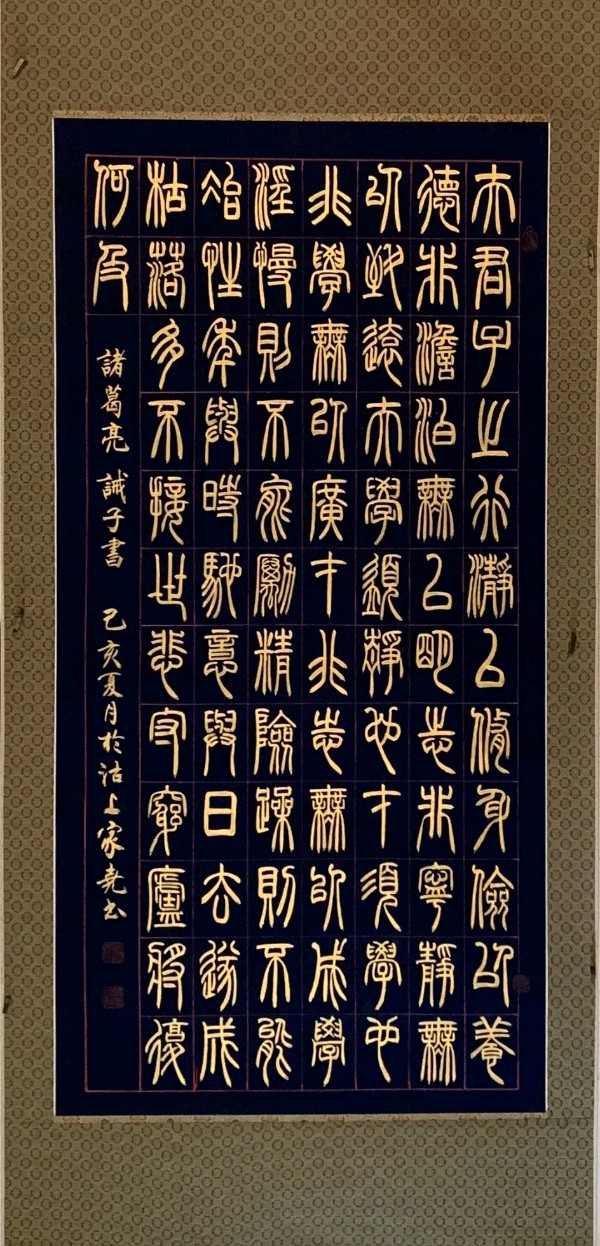 夫君子之行瀞以脩身儉以養
德非澹泊無以明志非寧靜無
以致遠夫學須靜也才須學也
非學無以廣才非志無以成學
淫慢則不能勵精險躁則不能
冶性年與時馳意與日去遂成
枯落多不接世悲守窮廬將復
何及
諸葛亮 誡子書 己亥夏月於沽上家堯书